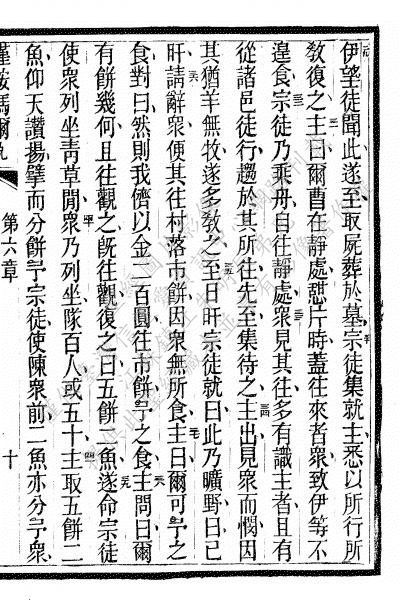 伊望徒聞此遂至取屍葬於墓宗徒集就主悉以所行所
敎復之主曰爾曹在靜處憇片時蓋往來者衆致伊等不
遑食宗徒乃乘舟自往靜處衆見其往多有識主者且有
從諸邑徒行趨於其所往先至集待之主出見衆而憫因
其猶羊無牧遂多敎之至日旰宗徒就曰此乃曠野日已
旰請辭衆便其往村落市餅因衆無所食主曰爾可予之
食對曰然則我儕以金二百圓往市餅予之食主問曰爾
有餅幾何且往觀之旣往觀復之曰五餅二魚遂命宗徒
使衆列坐靑草閒衆乃列坐隊百人或五十主取五餅二
魚仰天讚揚擘而分餅予宗徒使陳衆前二魚亦分予衆
第六章
十